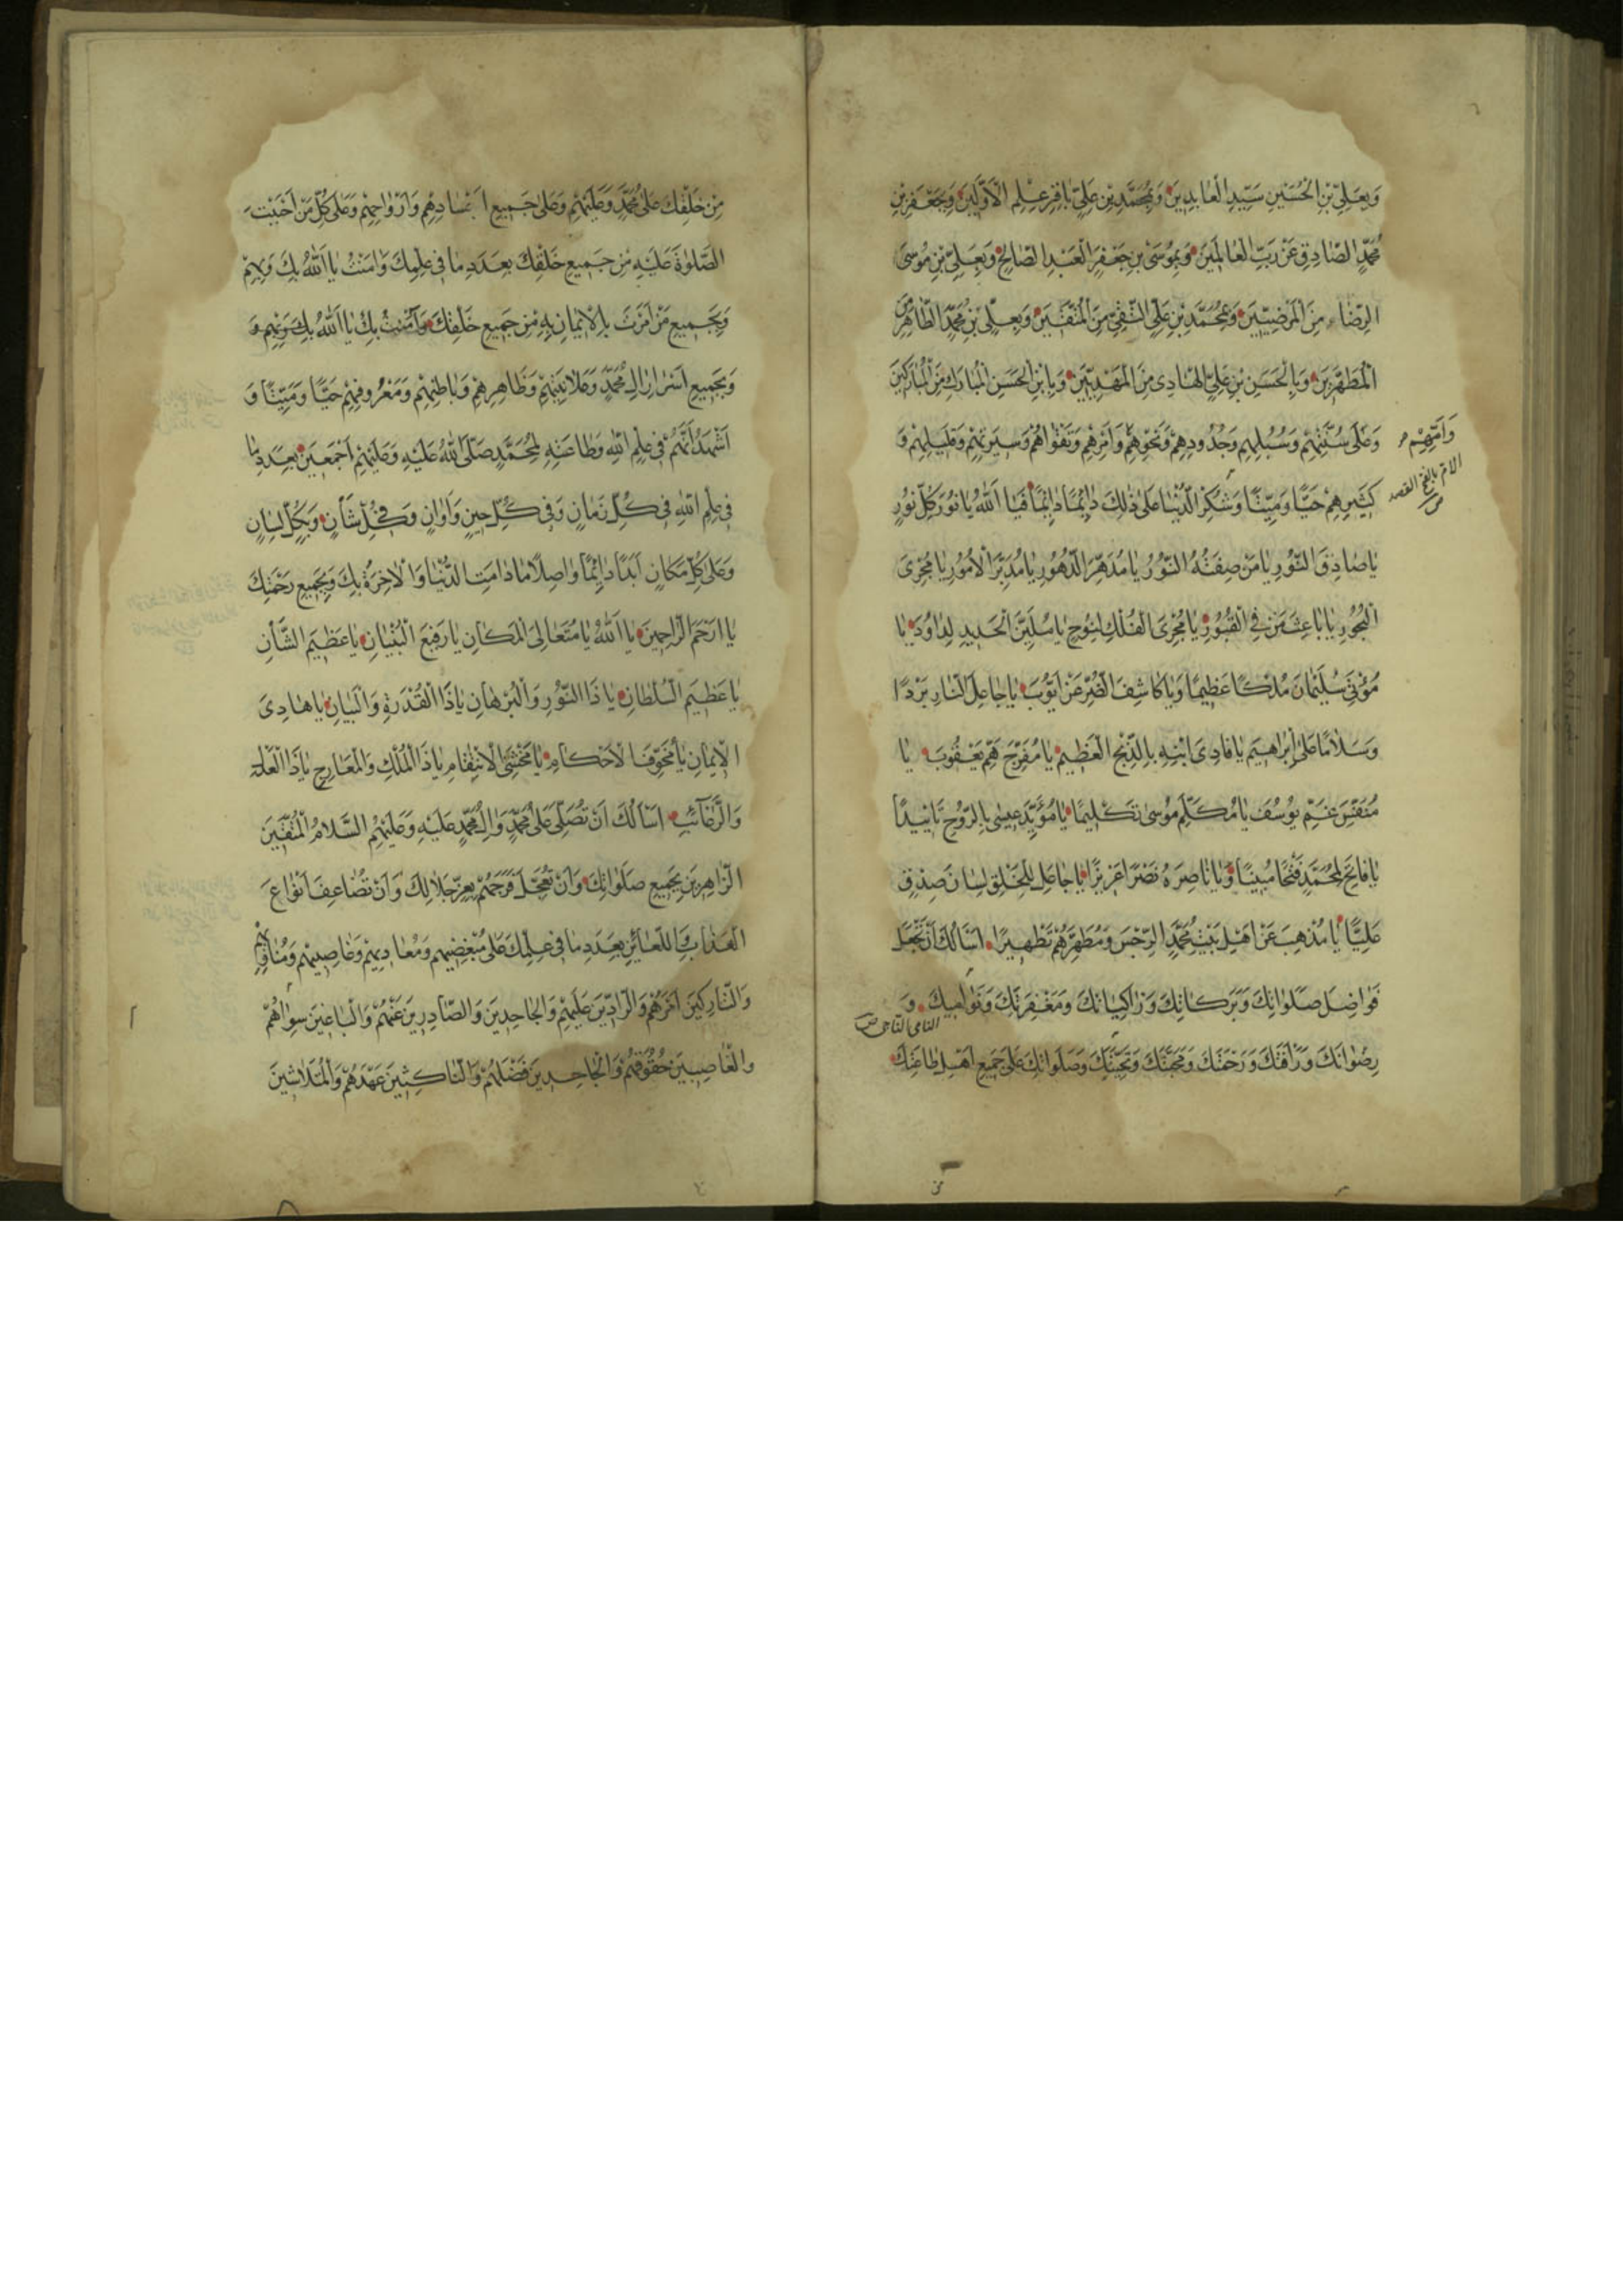 وَبِعَلِيِّ بْنِ الْحُسَيْنِ سَيِّدِ الْعَابِدِينَ وَبِمُحَمَّدِ بْنِ عَلِيٍّ بَاقِرِ عِلْمِ الْأَوَّلِينَ وَبِجَعْفَرِ بْنِ
مُحَمَّدٍ الصَّادِقِ عَنْ رَبِّ الْعَالَمِينَ وَبِمُوسَى بْنِ جَعْفَرٍ الْعَبْدِ الصَّالِحِ وَبِعَلِيِّ بْنِ مُوسَى
الرِّضَا مِنَ الْمَرْضِيِّينَ وَبِمُحَمَّدِ بْنِ عَلِيٍّ التَّقِيِّ مِنَ الْمُتَّقِينَ وَبِعَلِيِّ بْنِ مُحَمَّدٍ الطَّاهِرِ مِنَ
الْمُطَهَّرِينَ وَبِالْحَسَنِ بْنِ عَلِيٍّ الْهَادِي مِنَ الْمَهْدِيِّينَ وَبِابْنِ الْحَسَنِ الْمُبَارَكِ مِنَ الْمُبَارَكِينَ
وَعَلَى سُنَّتِهِمْ وَسُبُلِهِمْ وَحُدُودِهِمْ وَنَحْوِهِمْ وَأَمْرِهِمْ وَتَقْوَاهُمْ وَسِيرَتِهِمْ وَقَلِيلِهِمْ وَ
وَأَمِّهِمْ
كَثِيرِهِمْ حَيًّا وَمَيِّتًا وَشُكْرَ الدُّنْيَا عَلَى ذَلِكَ دَائِمًا دَائِمًا فَيَا اللَّهُ يَا نُورَ كُلِّ نُورٍ
الام بالفتح القصد
يَا صَادِقَ النُّورِ يَا مَنْ صِفَتُهُ النُّورُ يَا مُدَهِّرَ الدُّهُورِ يَا مُدَبِّرَ الْأُمُورِ يَا مُجْرِيَ
الْبُحُورِ يَا بَاعِثَ مَنْ فِي الْقُبُورِ يَا مُجْرِيَ الْفُلْكِ لِنُوحٍ يَا مُلَيِّنَ الْحَدِيدِ لِدَاوُدَ يَا
مُؤْتِيَ سُلَيْمَانَ مُلْكًا عَظِيمًا وَيَا كَاشِفَ الضُّرِّ عَنْ أَيُّوبَ يَا جَاعِلَ النَّارِ بَرْدًا
وَسَلَامًا عَلَى إِبْرَاهِيمَ يَا فَادِيَ ابْنِهِ بِالذِّبْحِ الْعَظِيمِ يَا مُفَرِّجَ هَمِّ يَعْقُوبَ يَا
مُنَفِّسَ غَمِّ يُوسُفَ يَا مُكَلِّمَ مُوسَى تَكْلِيمًا يَا مُؤَيِّدَ عِيسَى بِالرُّوحِ تَأْيِيدًا
يَا فَاتِحَ لِمُحَمَّدٍ فَتْحًا مُبِينًا وَيَا نَاصِرَهُ نَصْرًا عَزِيزًا يَا جَاعِلَ لِلْخَلْقِ لِسَانَ صِدْقٍ
عَلِيًّا يَا مُذْهِبَ عَنْ أَهْلِ بَيْتِ مُحَمَّدٍ الرِّجْسَ وَمُطَهِّرَهُمْ تَطْهِيرًا أَسْأَلُكَ أَنْ تَجْعَلَ
فَوَاضِلَ صَلَوَاتِكَ وَبَرَكَاتِكَ وَزَاكِيَاتِكَ وَمَغْفِرَتَكَ وَنَوَامِيكَ وَ
النامي
رِضْوَانَكَ وَرَأْفَتَكَ وَرَحْمَتَكَ وَمَحَبَّتَكَ وَتَحِيَّتَكَ وَصَلَوَاتِكَ عَلَى جَمِيعِ أَهْلِ طَاعَتِكَ
مِنْ خَلْقِكَ عَلَى مُحَمَّدٍ وَعَلَيْهِمْ وَعَلَى جَمِيعِ أَجْسَادِهِمْ وَأَرْوَاحِهِمْ وَعَلَى كُلِّ مَنْ أَحْبَبْتَ
الصَّلَوٰةَ عَلَيْهِ مِنْ جَمِيعِ خَلْقِكَ بِعَدَدِ مَا فِي عِلْمِكَ وَآمَنْتُ يَا اللَّهُ بِكَ وَبِهِمْ
وَبِجَمِيعِ مَنْ أَمَرْتَ بِالْإِيمَانِ بِهِ مِنْ جَمِيعِ خَلْقِكَ وَآمَنْتُ بِكَ يَا اللَّهُ بِكَ وَبِهِمْ وَ
وَبِجَمِيعِ أَسْرَارِ آلِ مُحَمَّدٍ وَعَلَانِيَتِهِمْ وَظَاهِرِهِمْ وَبَاطِنِهِمْ وَمَعْرُوفِهِمْ حَيًّا وَمَيِّتًا وَ
أَشْهَدُ أَنَّهُمْ فِي عِلْمِ اللَّهِ وَطَاعَتِهِ لِمُحَمَّدٍ صَلَّى اللَّهُ عَلَيْهِ وَعَلَيْهِمْ أَجْمَعِينَ بِعَدَدِ مَا
فِي عِلْمِ اللَّهِ فِي كُلِّ زَمَانٍ وَفِي كُلِّ حِينٍ وَأَوَانٍ وَفِي كُلِّ شَأْنٍ وَبِكُلِّ لِسَانٍ
وَعَلَى كُلِّ مَكَانٍ أَبَدًا دَائِمًا وَاصِلًا مَا دَامَتِ الدُّنْيَا وَالْآخِرَةُ بِكَ وَبِجَمِيعِ رَحْمَتِكَ
يَا أَرْحَمَ الرَّاحِمِينَ يَا اللَّهُ يَا مُتَعَالِيَ الْمَكَانِ يَا رَفِيعَ الْبُنْيَانِ يَا عَظِيمَ الشَّأْنِ
يَا عَظِيمَ السُّلْطَانِ يَا ذَا النُّورِ وَالْبُرْهَانِ يَا ذَا الْقُدْرَةِ وَالْبَيَانِ يَا هَادِيَ
الْإِيمَانِ يَا مُخَوِّفَ الْأَحْكَامِ يَا مَخْشِيَّ الِانْتِقَامِ يَا ذَا الْمُلْكِ وَالْمَعَارِجِ يَا ذَا الْعَدْلِ
وَالرَّغَائِبِ أَسْأَلُكَ أَنْ تُصَلِّيَ عَلَى مُحَمَّدٍ وَآلِ مُحَمَّدٍ عَلَيْهِ وَعَلَيْهِمُ السَّلَامُ الْمُتَّقِينَ
الزَّاهِرِينَ بِجَمِيعِ صَلَوَاتِكَ وَأَنْ تُعَجِّلَ فَرَجَهُمْ بِعِزِّ جَلَالِكَ وَأَنْ تُضَاعِفَ أَنْوَاعَ
الْعَذَابِ وَاللَّعَائِنِ بِعَدَدِ مَا فِي عِلْمِكَ عَلَى مُبْغِضِيهِمْ وَمُعَادِيهِمْ وَغَاصِبِيهِمْ وَمُنَاوِيهِمْ
وَالتَّارِكِينَ أَمْرَهُمْ وَالرَّادِّينَ عَلَيْهِمْ وَالْجَاحِدِينَ وَالصَّادِرِينَ عَنْهُمْ وَالْبَاغِينَ سِوَاهُمْ
وَالْغَاصِبِينَ حُقُوقَهُمْ وَالْجَاحِدِينَ فَضْلَهُمْ وَالنَّاكِثِينَ عَهْدَهُمْ وَالْمُتَلَاشِينَ